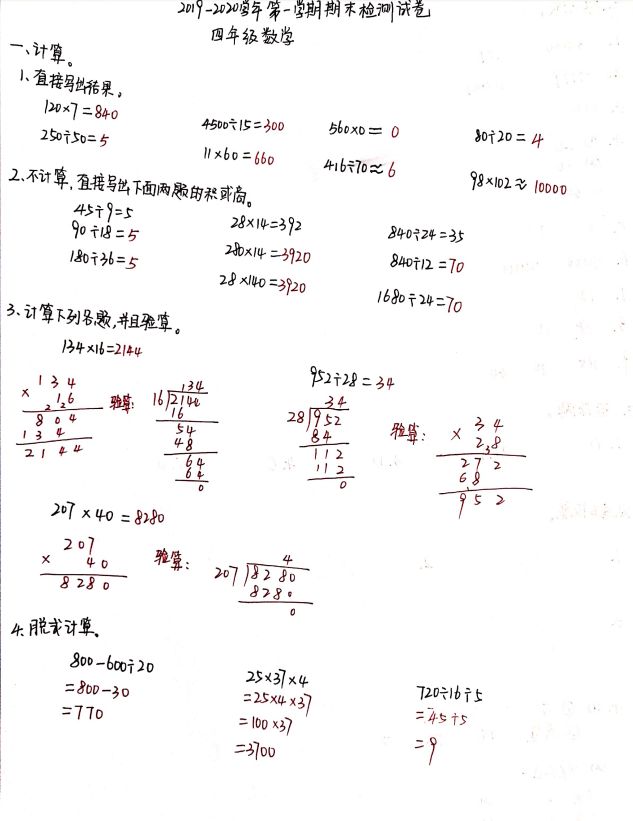 2019-2020学年第一学期期末检测试卷
四年级数学
一、计算。
1、直接写出结果。
120×7=840
4500÷15=300
560×0=0
80÷20=4
250÷50=5
11×60=660
416÷70≈6
98×102≈10000
2、不计算,直接写出下面两题的积或商。
45÷9=5
28×14=392
840÷24=35
90÷18=5
280×14=3920
840÷12=70
180÷36=5
28×140=3920
1680÷24=70
3、计算下列各题,并且验算。
134×16=2144
134
× 16
2 2
804
134
2144
验算:
134
16 2144
16
54
48
64
64
0
952÷28=34
34
28 952
84
112
112
0
验算:
34
× 28
3
272
68
952
207×40=8280
207
× 40
8280
验算:
4
207 8280
8280
0
4、脱式计算。
800-600÷20
=800-30
=770
25×37×4
=25×4×37
=100×37
=3700
720÷16÷5
=45÷5
=9